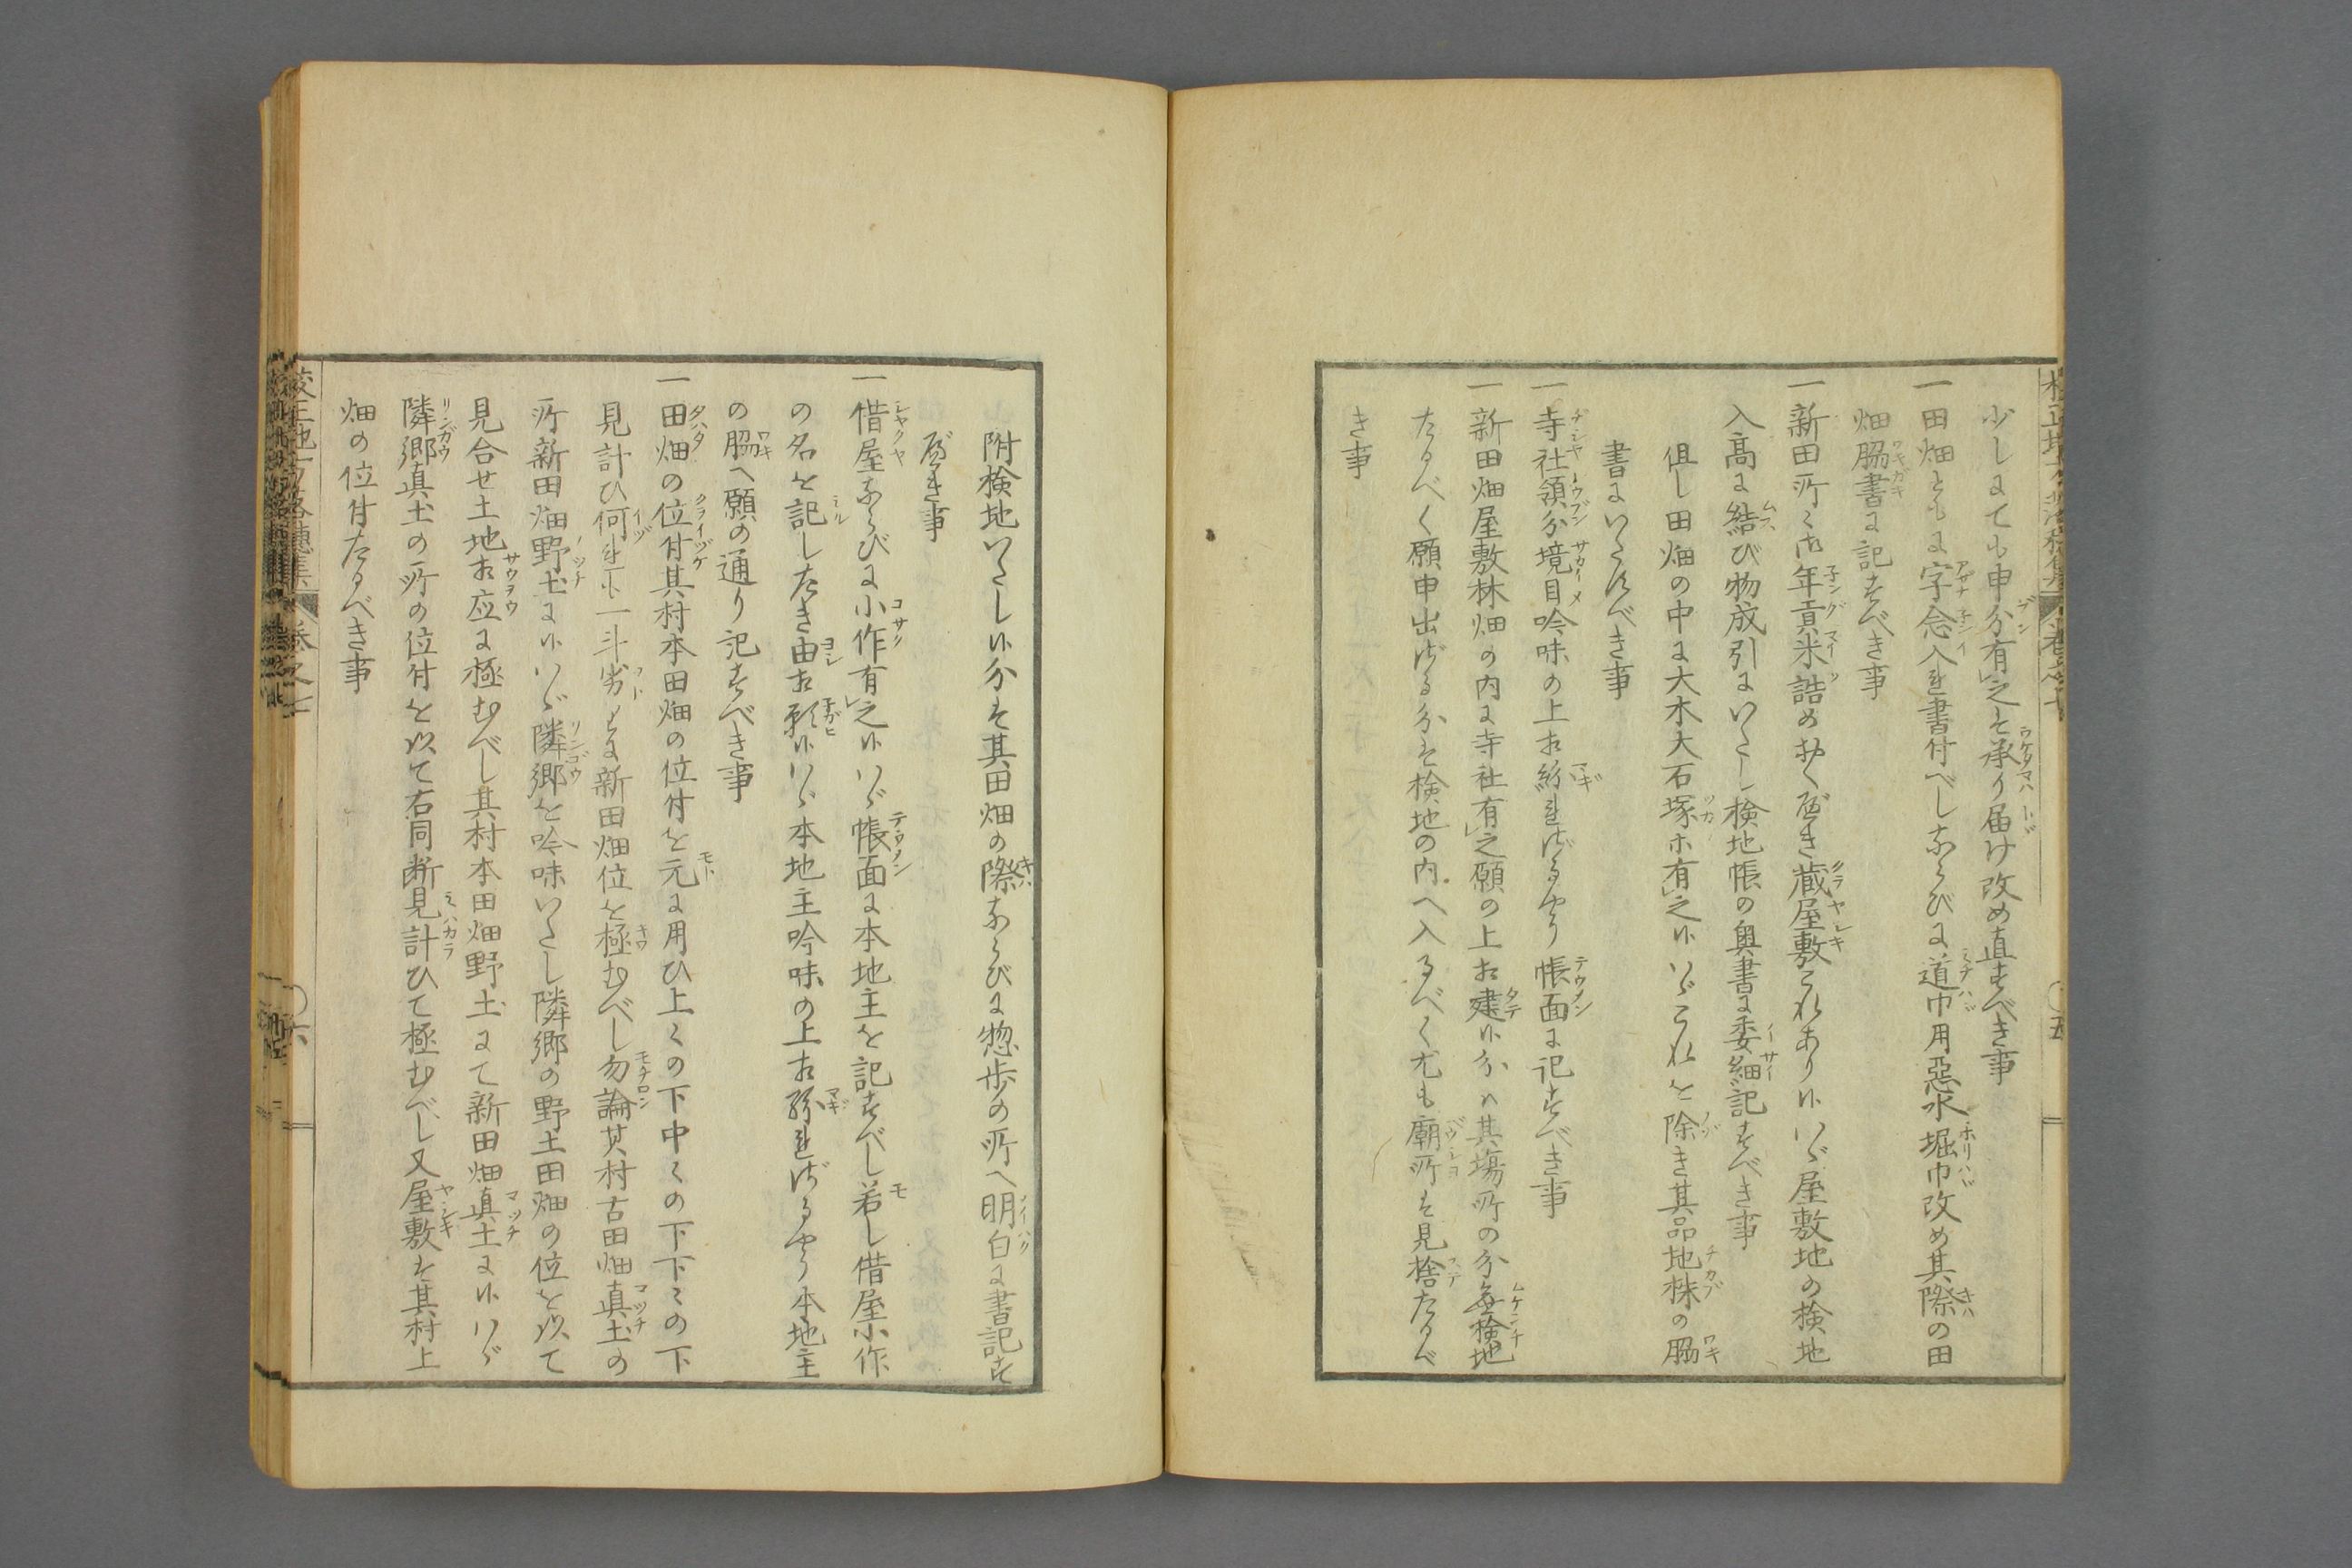 少しにても申分有レ之は承り届け改め直すべき事
一田畑ともに字念入れ書付べしならびに道巾用惡水堀巾改め其際の田
畑脇書に記すべき事
一新田所々御年貢米詰めおくべき蔵屋敷これあり候はゞ屋敷地の検地
入高に結び物成引にいたし検地帳の奥書に委細記すべき事
但し田畑の中に大木大石塚木有レ之候はゞこれを除き其品地株の脇
書にいたすべき事
一寺社領分境目吟味の上相紛れざるやう帳面に記すべき事
一新田畑屋敷林畑の内に寺社有レ之願の上相建候分ハ其塲所の分無検地
たるべく願申出ざる分は検地の内へ入るべく尤も廟所は見捨たるべ
き事
附検地いたし候分は其田畑の際ならびに惣歩の所へ明白に書記す
べき事
一借屋ならびに小作有レ之候はゞ帳面に本地主を記すべし若し借屋小作
の名を記したき由相願候はゞ本地主吟味の上相紛れざるやう本地主
の脇へ願の通り記すべき事
一田畑の位付其村本田畑の位付を元に用ひ上々の下中々の下下々の下
見計ひ何れ下一斗劣りに新田畑位を極むべし勿論其村古田畑真土の
所新田畑野土に候はゞ隣郷を吟味いたし隣郷の野土田畑の位を以て
見合せ土地相応に極むべし其村本田畑野土にて新田畑真土に候はゞ
隣郷真土の所の位付を以て右同断見計ひて極むべし又屋敷は其村上
畑の位付たるべき事
校正地方落穂集 巻之七
〇六